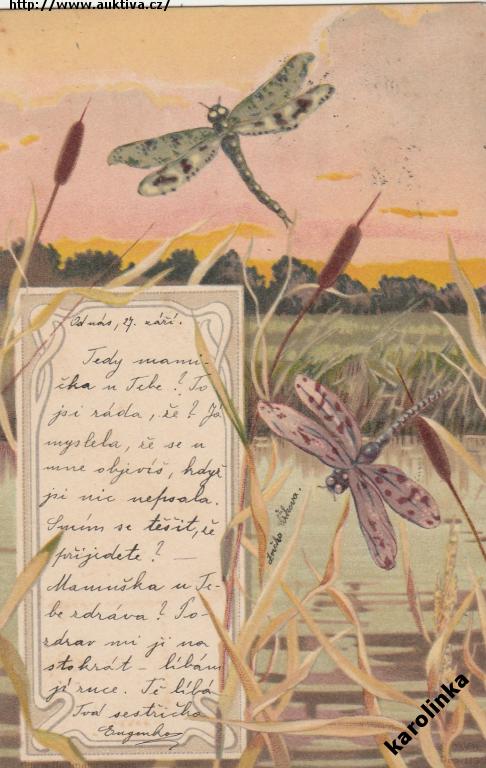 http://www.auktiva.cz/
Od nás, 27. září.
Tedy mami-
čka u Tebe? To
jsi ráda, že? Já
myslela, že se u
mne objevíš, když
jsi nic nepsala.
Smím se těšit, že
přijedete? —
Mamuška u Te-
be zdráva? Po-
zdrav mi ji na
stokrát – líbám
jí ruce. Tě líbá
Tvá sestřička
Eugenka
karolinka